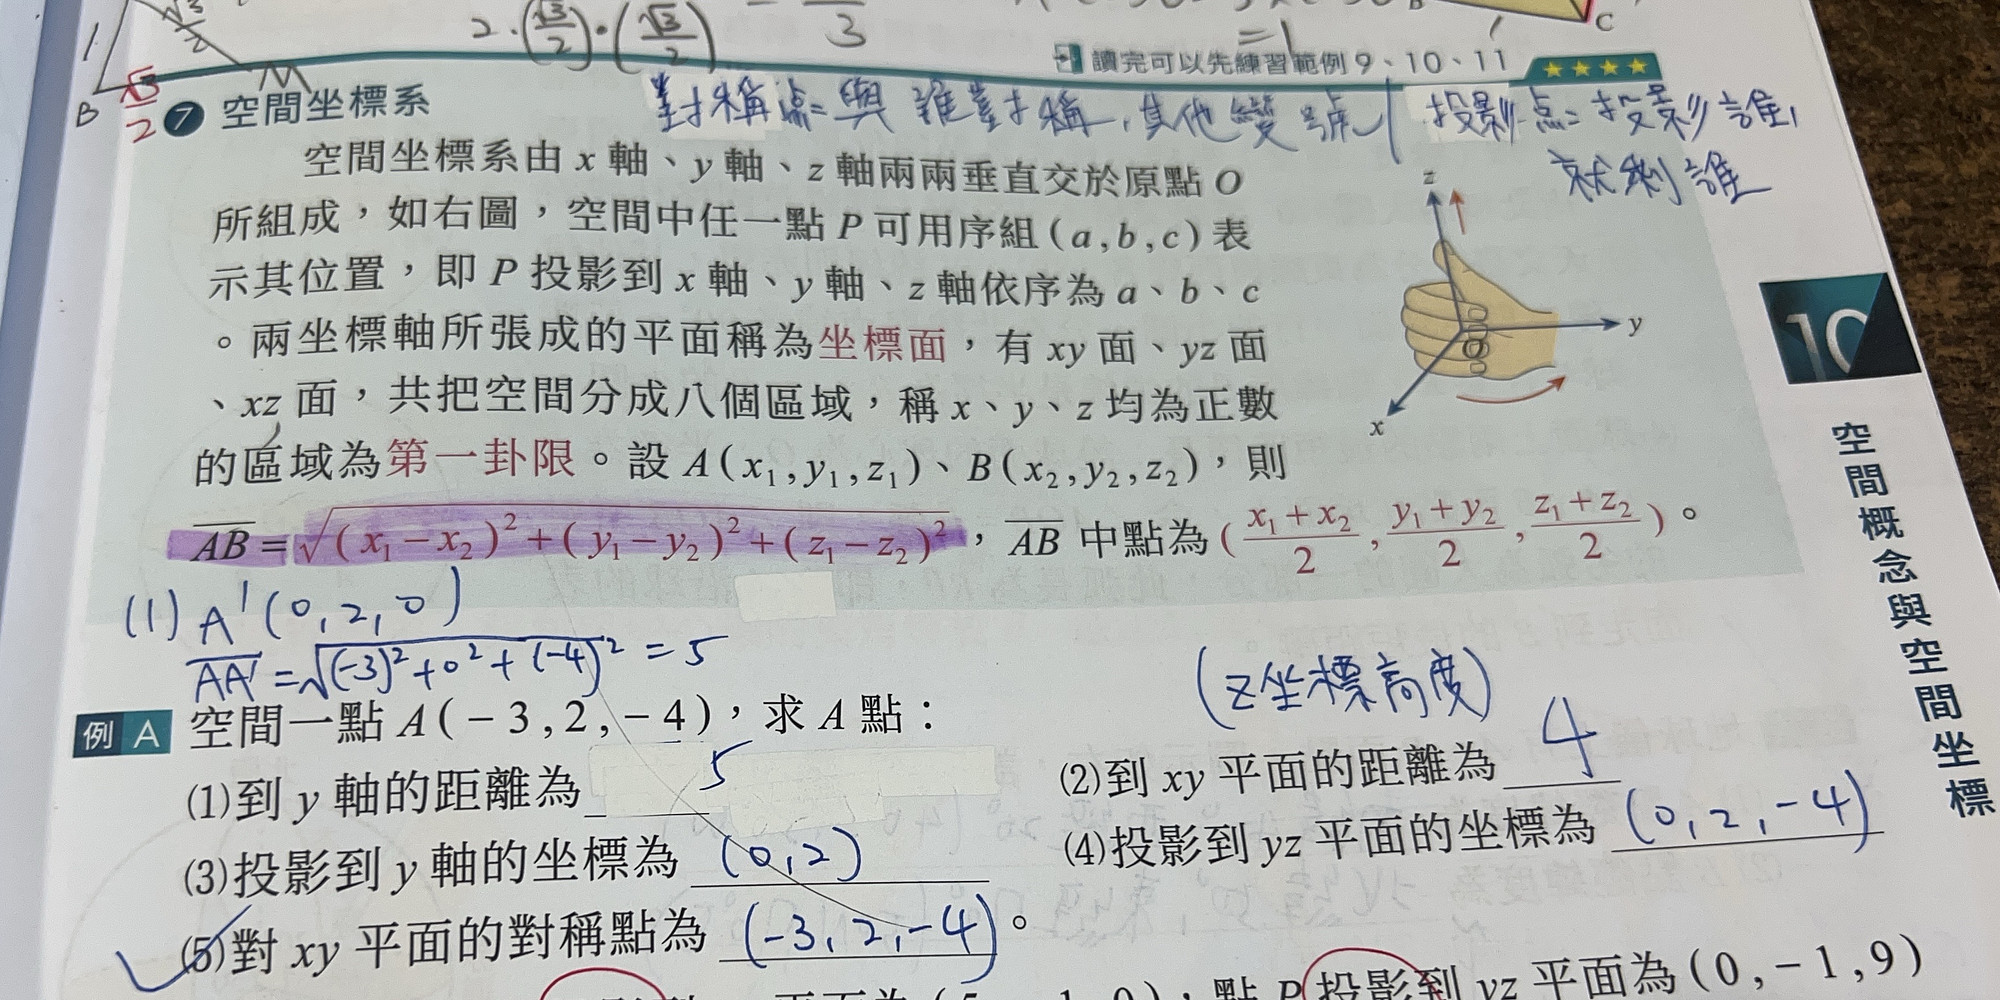 1
√3/2
B
√3/2
2·(√3/2)·(√3/2)
3
=1
C
讀完可以先練習範例 9、10、11
★★★★
7 空間坐標系
對稱点=與誰對稱,其他變號
投影点=投影誰,
就剩誰
空間坐標系由 x 軸、y 軸、z 軸兩兩垂直交於原點 O
所組成,如右圖,空間中任一點 P 可用序組(a,b,c)表
示其位置,即 P 投影到 x 軸、y 軸、z 軸依序為 a、b、c
。兩坐標軸所張成的平面稱為坐標面,有 xy 面、yz 面
、xz 面,共把空間分成八個區域,稱 x、y、z 均為正數
的區域為第一卦限。設 A(x₁,y₁,z₁)、B(x₂,y₂,z₂),則
AB=√(x₁−x₂)²+(y₁−y₂)²+(z₁−z₂)²,AB 中點為(x₁+x₂/2,y₁+y₂/2,z₁+z₂/2)。
z
y
O
x
10
空間概念與空間坐標
(1) A'(0,2,0)
AA'=√(-3)²+0²+(-4)² =5
例 A 空間一點 A(−3,2,−4),求 A 點:
(z坐標高度)
(1)到 y 軸的距離為 5
(2)到 xy 平面的距離為 4
(3)投影到 y 軸的坐標為 (0,2)
(4)投影到 yz 平面的坐標為 (0,2,-4)
(5)對 xy 平面的對稱點為 (-3,2,-4)。
點 P 投影到 yz 平面為(0,−1,9)